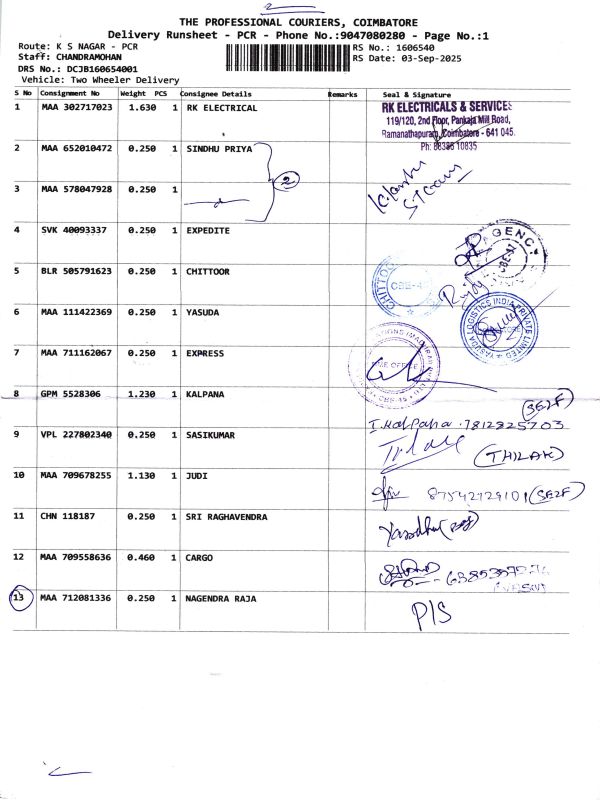 THE PROFESSIONAL COURIERS, COIMBATORE
Delivery Runsheet - PCR - Phone No.:9047080280 - Page No.:1
Route: K S NAGAR - PCR RS No.: 1606540
Staff: CHANDRAMOHAN RS Date: 03-Sep-2025
DRS No.: DCJB160654001
Vehicle: Two Wheeler Delivery
S No Consignment No Weight PCS Consignee Details Remarks Seal & Signature
1 MAA 302717023 1.630 1 RK ELECTRICAL RK ELECTRICALS & SERVICES
119/120, 2nd Floor, Pankaja Mill Road,
Ramanathapuram, Coimbatore - 641 045.
Ph: 98386 10835
2 MAA 652010472 0.250 1 SINDHU PRIYA
2
3 MAA 578047928 0.250 1
4 SVK 40093337 0.250 1 EXPEDITE
AGENC
CBE-47
5 BLR 505791623 0.250 1 CHITTOOR CHITTOO CBE-4
6 MAA 111422369 0.250 1 YASUDA YASUDA LOGISTICS INDIA PRIVATE LIMITED
7 MAA 711162067 0.250 1 EXPRESS
OFFICE
CBE-45
8 GPM 5528306 1.230 1 KALPANA (SELF)
I.Kalpana . 7812825703
9 VPL 227802340 0.250 1 SASIKUMAR Thilak (THILAK)
10 MAA 709678255 1.130 1 JUDI
87542729101 (SELF)
11 CHN 118187 0.250 1 SRI RAGHAVENDRA Yasodha
12 MAA 709558636 0.460 1 CARGO
13 MAA 712081336 0.250 1 NAGENDRA RAJA P/S